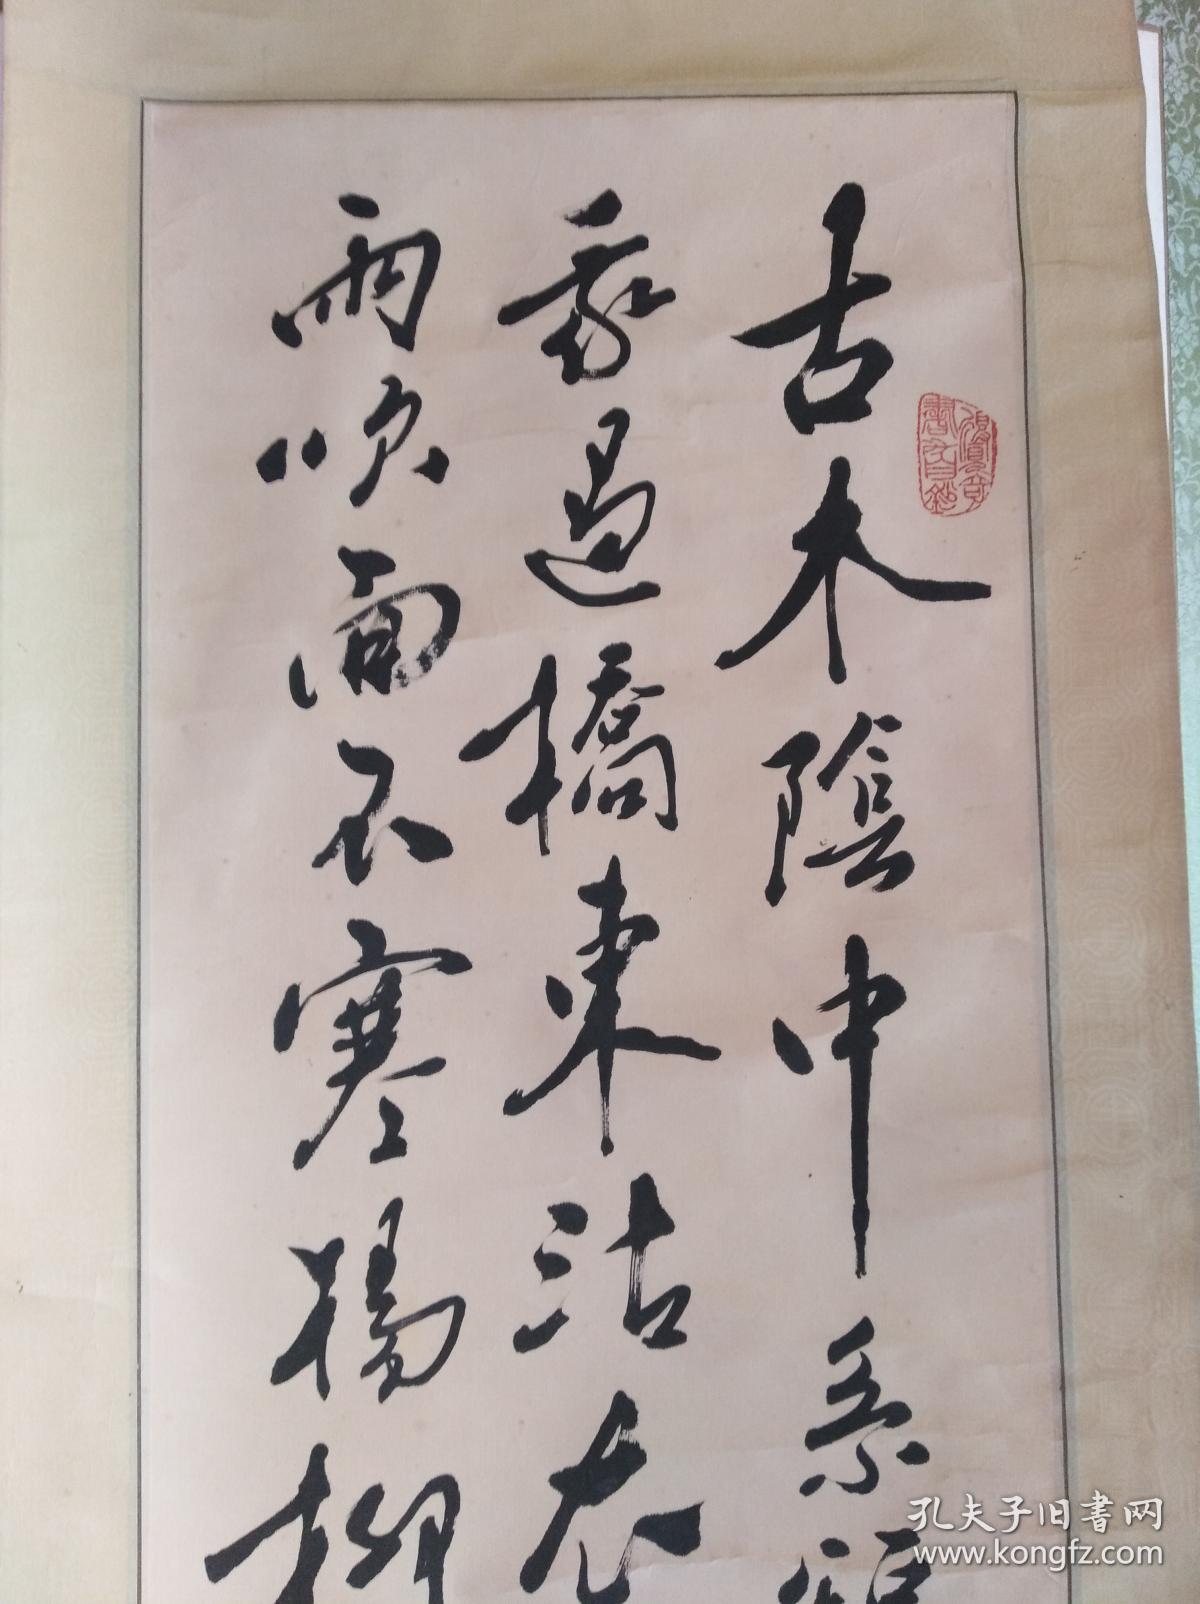 古木陰中系
我過橋東沾衣
雨吹面不寒楊柳
孔夫子旧書网
www.kongfz.com